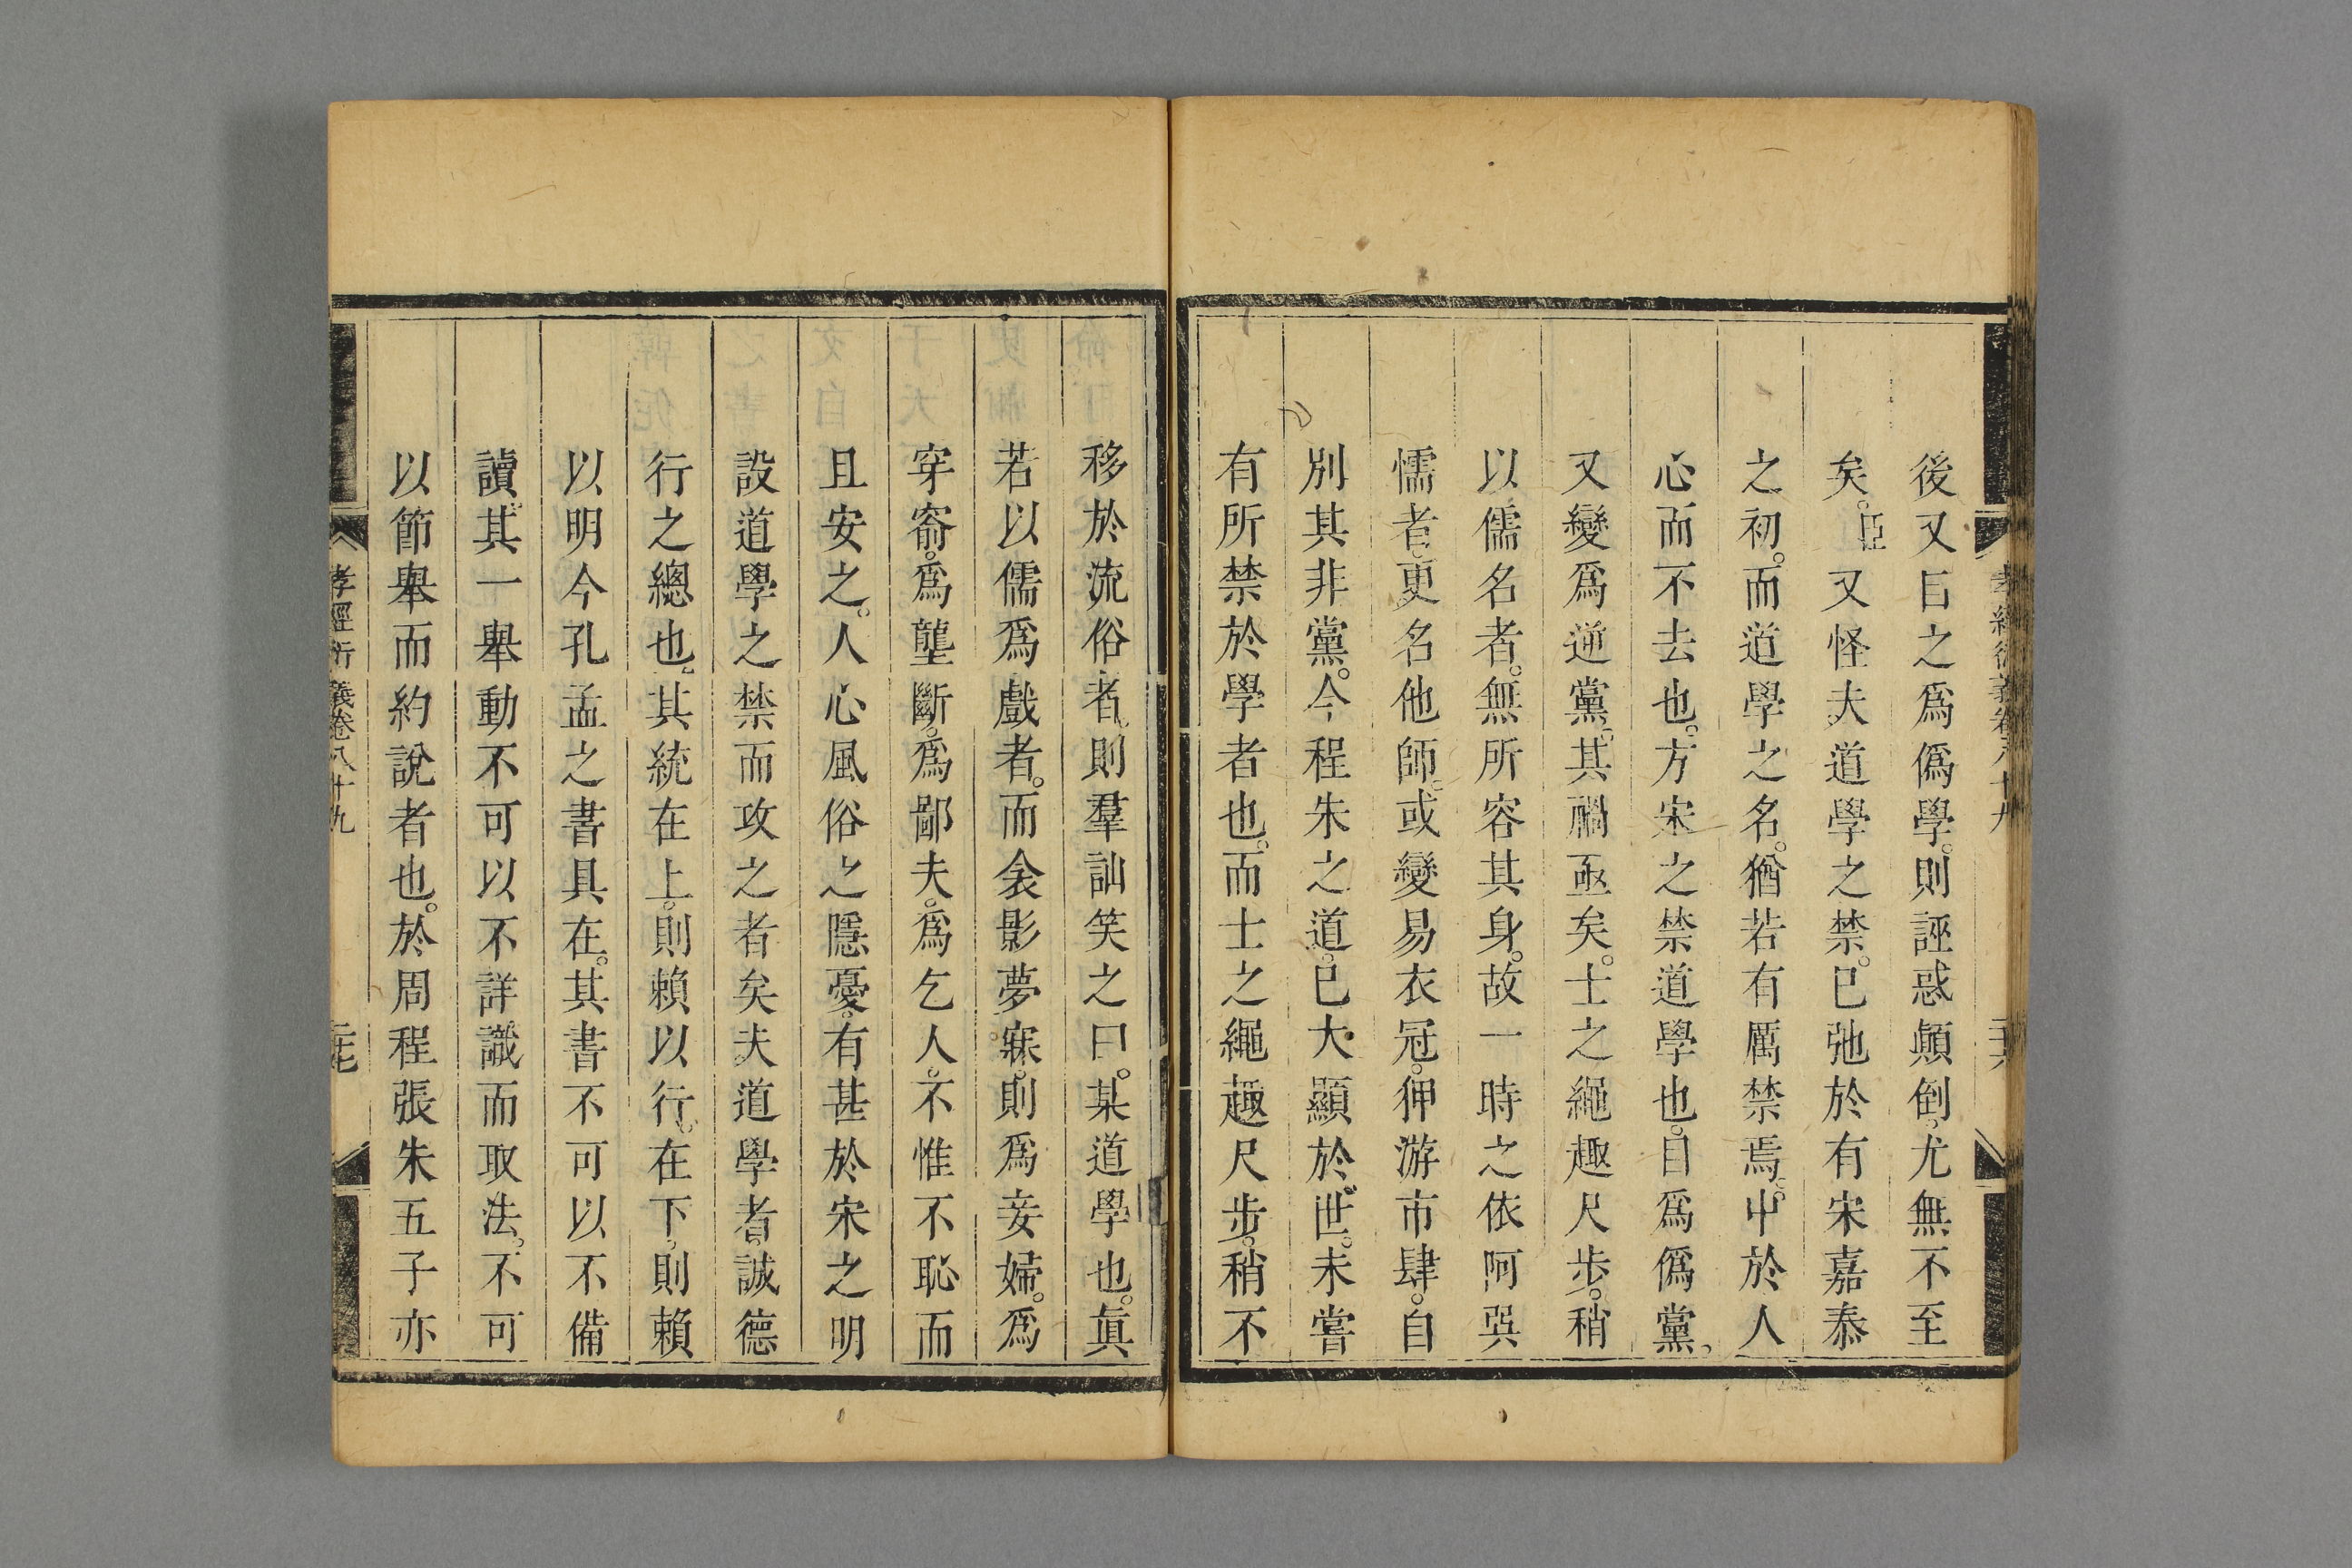 孝經衍義卷八十九
二十六
後又目之爲僞學。則誣惑顛倒。尤無不至
矣。臣又怪夫道學之禁。已弛於有宋嘉泰
之初。而道學之名。猶若有厲禁焉。中於人
心而不去也。方宋之禁道學也。目爲僞黨。
又變爲逆黨。其禍亟矣。士之繩趨尺步。稍
以儒名者。無所容其身。故一時之依阿巽
懦者。更名他師。或變易衣冠。狎游市肆。自
別其非黨。今程朱之道。已大顯於世。未嘗
有所禁於學者也。而士之繩趨尺步。稍不
移於流俗者。則羣訕笑之曰。某道學也。眞
若以儒爲戲者。而衾影夢寐。則爲妾婦。爲
穿窬。爲壟斷。爲鄙夫。爲乞人。不惟不恥而
且安之。人心風俗之隱憂。有甚於宋之明
設道學之禁而攻之者矣夫道學者。誠德
行之總也。其統在上。則賴以行。在下。則賴
以明今孔孟之書具在。其書不可以不備
讀。其一舉動不可以不詳識而取法。不可
以節舉而約說者也。於周程張朱五子亦
孝經衍義卷八十九
二十七